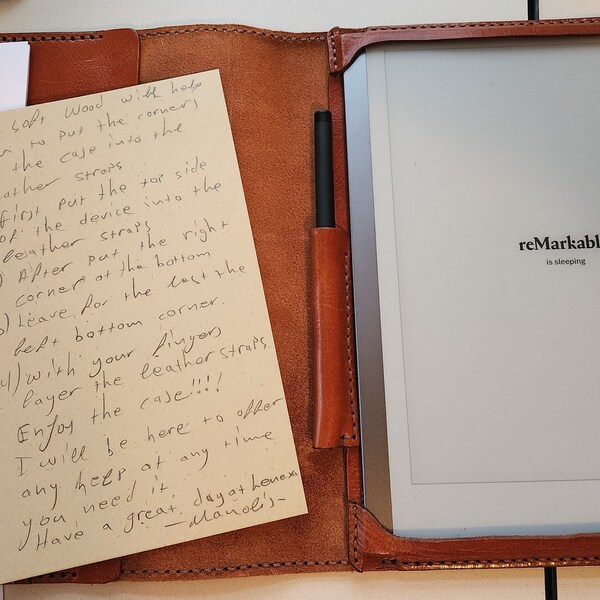 soft wood will help
to put the corners
the case into the
leather straps
first put the top side
of the device into the
leather straps
) After put the right
corner at the bottom
) Leave for the last the
left bottom corner.
4) with your fingers
layer the leather straps.
Enjoy the case!!!!
I will be here to offer
any help at any time
you need it
Have a great day ahead
-Manolis-
reMarkabl
is sleeping